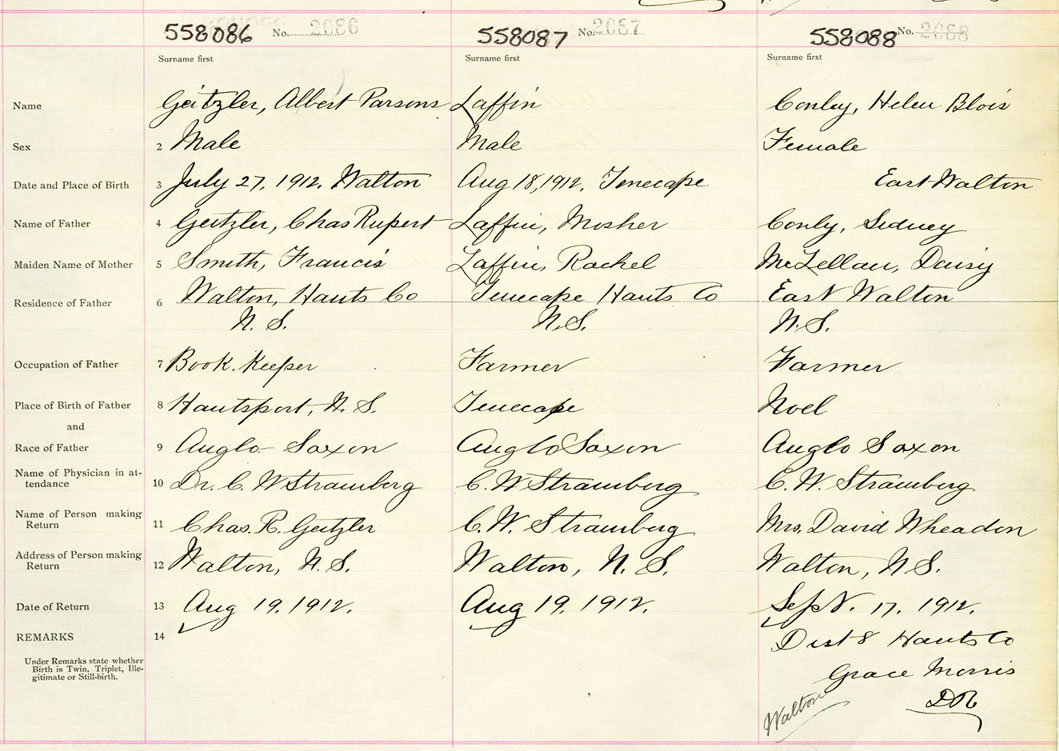 558086 No. 2086 558087 No. 2087 558088 No. 2088
Surname first Surname first Surname first
Name Geitzler, Albert Parsons Laffin Conley, Helen Blois
Sex 2 Male Male Female
Date and Place of Birth 3 July 27, 1912. Walton Aug 18, 1912, Tenecape East Walton
Name of Father 4 Geitzler, Chas Rupert Laffin, Mosher Conly, Sidney
Maiden Name of Mother 5 Smith, Francis Laffin, Rachel McLellan, Daisy
Residence of Father 6 Walton, Hants Co Tenecape Hants Co East Walton
N. S. N.S. N.S.
Occupation of Father 7 Book.Keeper Farmer Farmer
Place of Birth of Father 8 Hantsport, N. S. Tenecape Noel
and
Race of Father 9 Anglo-Saxon Anglo Saxon Anglo Saxon
Name of Physician in at-
tendance 10 Dr. C. W Stramberg C. W Stramberg C. W. Stramberg
Name of Person making
Return 11 Chas. R. Geitzler C. W. Stramberg Mrs. David Wheadon
Address of Person making
Return 12 Walton, N. S. Walton, N. S. Walton, N S.
Date of Return 13 Aug 19, 1912. Aug 19, 1912. Sept. 17, 1912.
REMARKS 14 Dist 8 Hants Co
Under Remarks state whether
Birth is Twin, Triplet, Ille-
gitimate or Still-birth.
Grace Morris
Walton DR